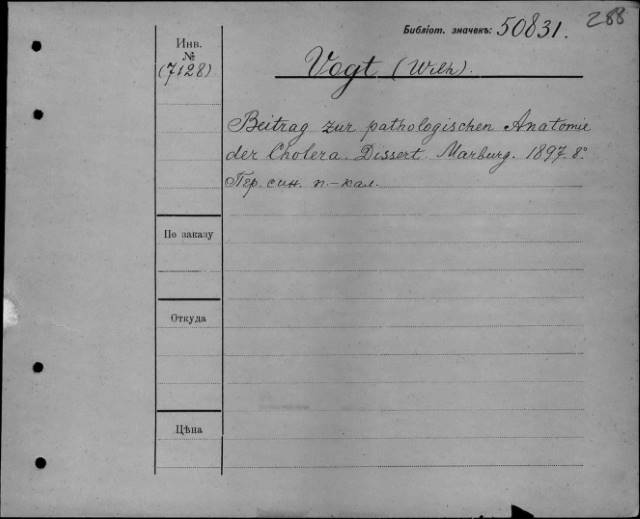 288
Библіот. значекъ: 50831.
Инв.
№
(7128)
Vogt (Wilh).
Beitrag zur pathologischen Anatomie
der Cholera. Dissert. Marburg. 1897. 8°
Пер. син. п.-кал.
По заказу
Откуда
Цѣна